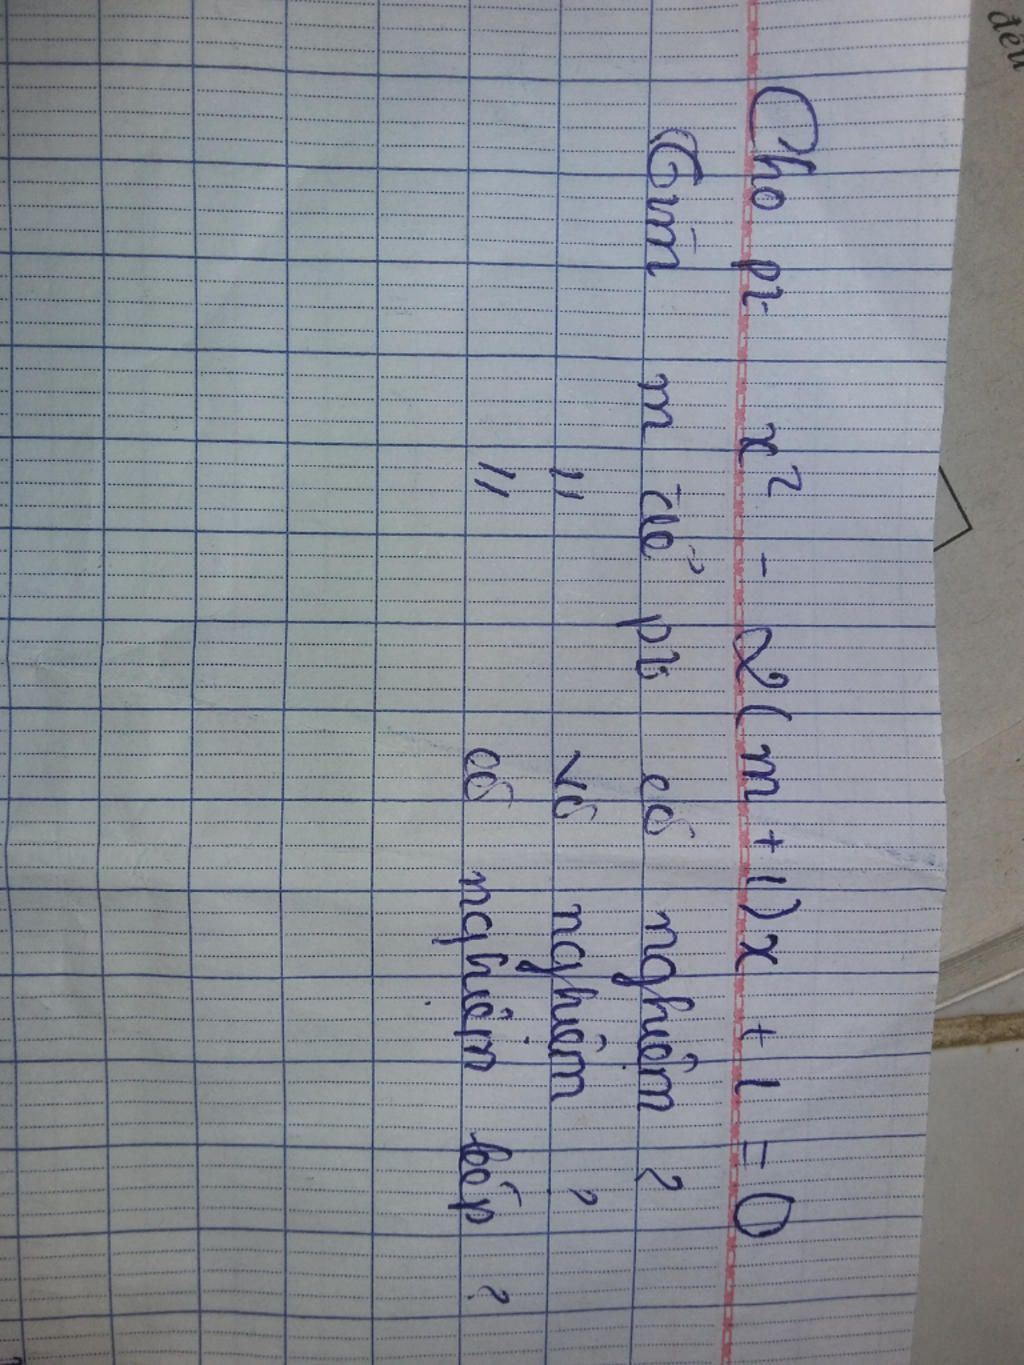 Cho pt x² - 2(m+1)x + 1 = 0
Tìm m để pt có nghiệm ?
" vô nghiệm ?
" có nghiệm kép ?
đều